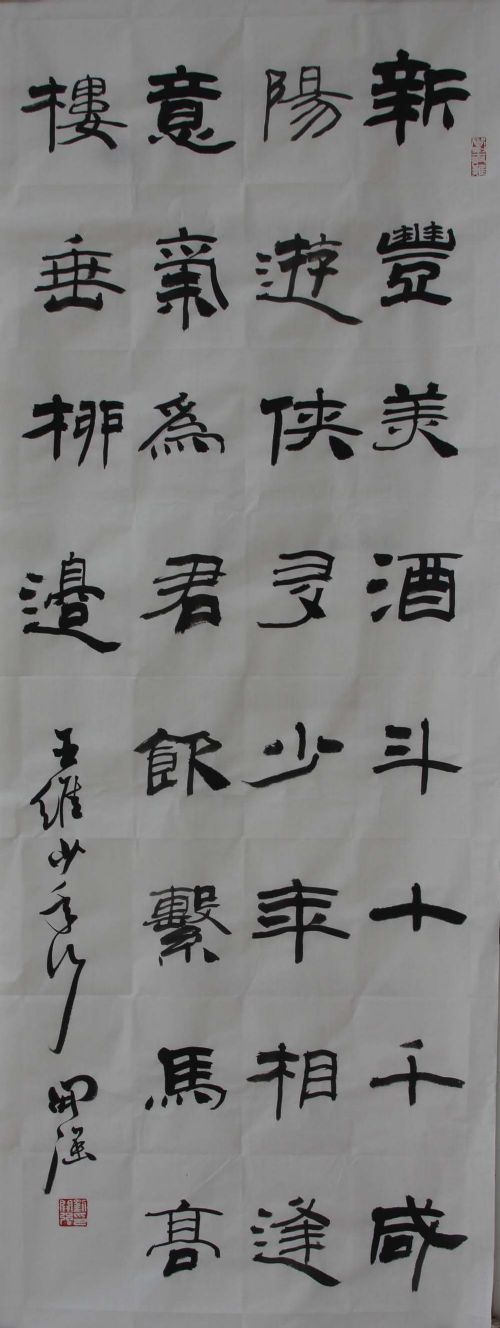 新豐美酒斗十千咸
陽遊俠多少年相逢
意氣為君飲繫馬高
樓垂柳邊
王維少年行